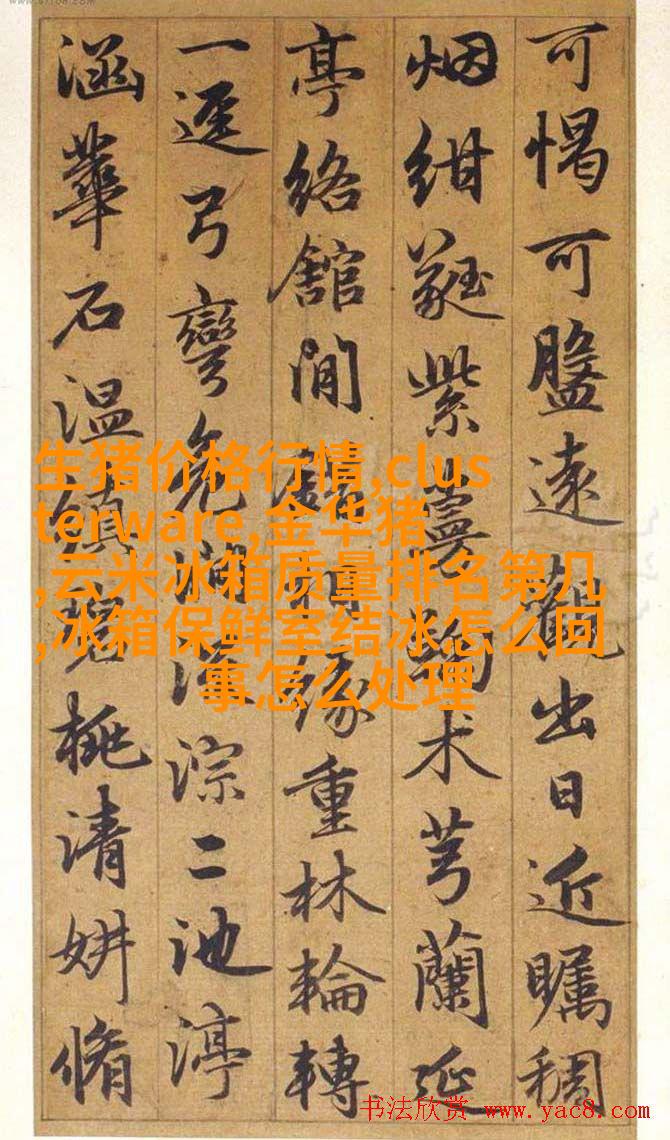 可愒可盤遠觀出日近矚稠
烟紺蕤紫蔓術芎蘭延
亭絡館閒緣重林輪轉
一逕弓彎淙二池渟
涵華石温碧桃清妍脩
生猪价格行情,clus
terware,金华猪
,云米冰箱质量排名第几
,冰箱保鲜室结冰怎么回
事怎么处理
书法欣赏 www.yac8.com